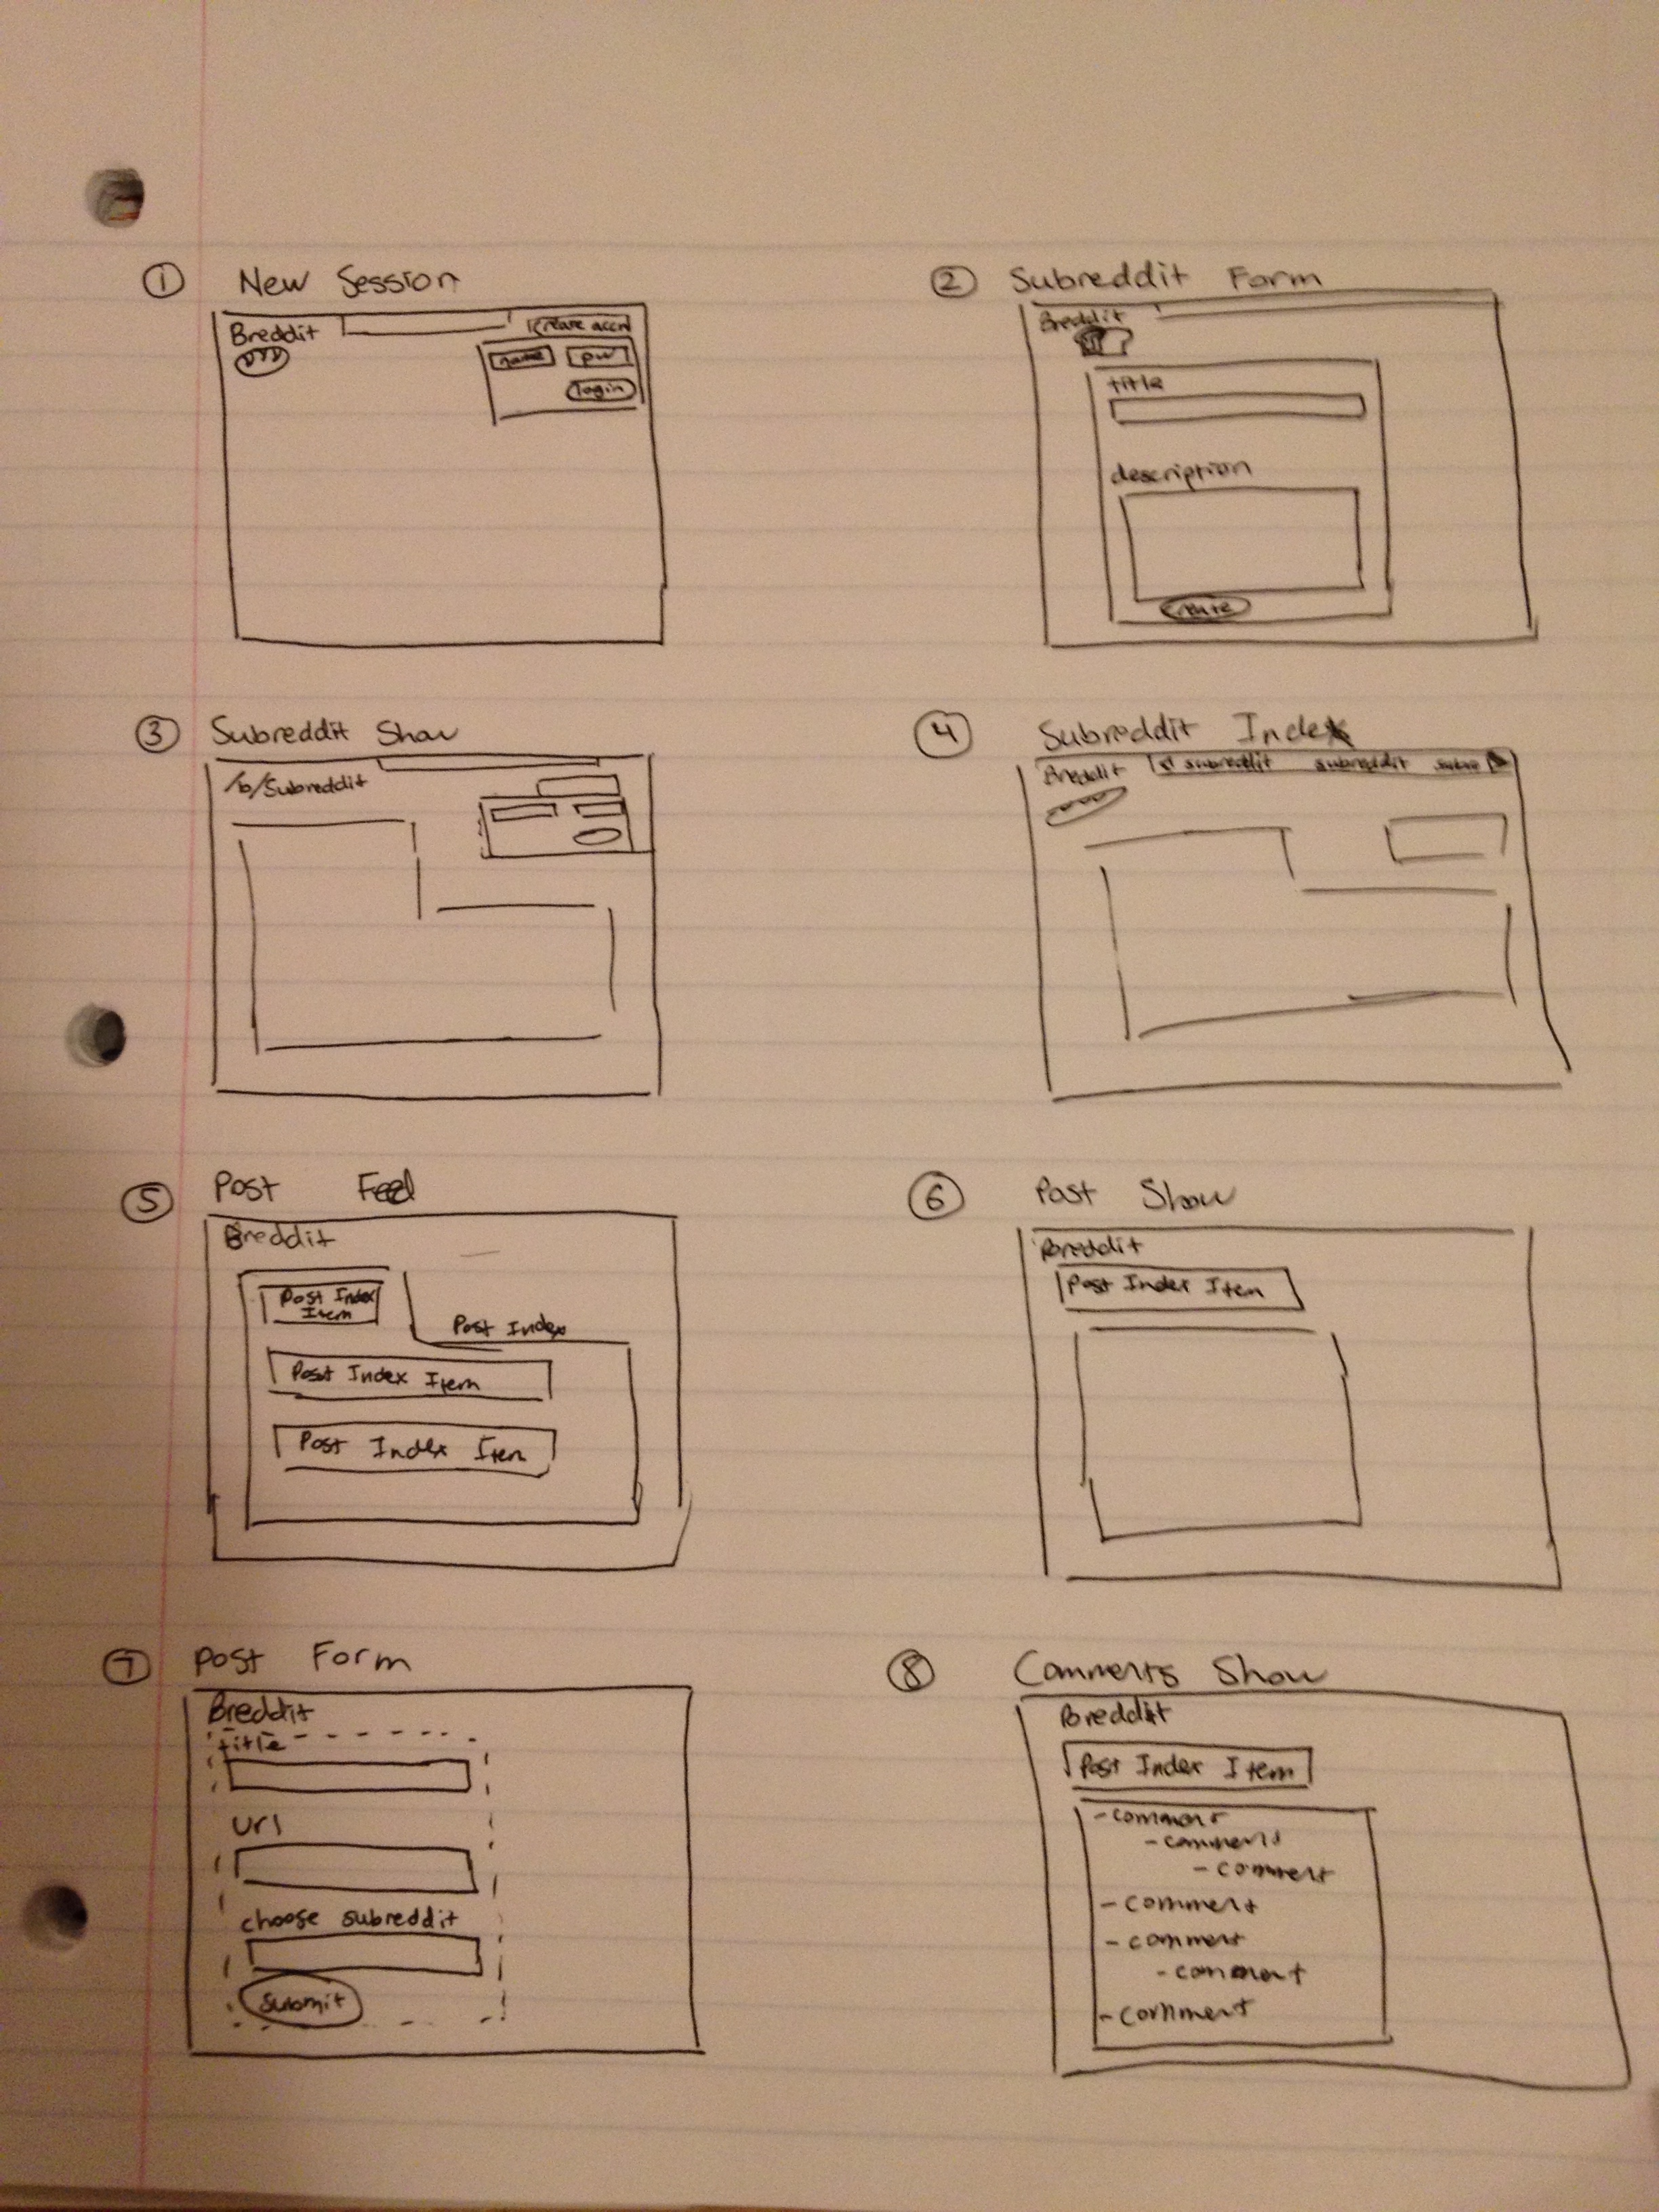 ① New Session
Breddit
create accn
name pw
login
② Subreddit Form
Breddit
title
description
create
③ Subreddit Show
/b/Subreddit
④ Subreddit Index
Breddit subreddit subreddit subre
⑤ Post Feed
Breddit
Post Index
Item
Post Index
Post Index Item
Post Index Item
⑥ Post Show
Breddit
Post Index Item
⑦ Post Form
Breddit
title
url
choose subreddit
submit
⑧ Comments Show
Breddit
Post Index Item
- comment
- comment
- comment
- comment
- comment
- comment
- comment